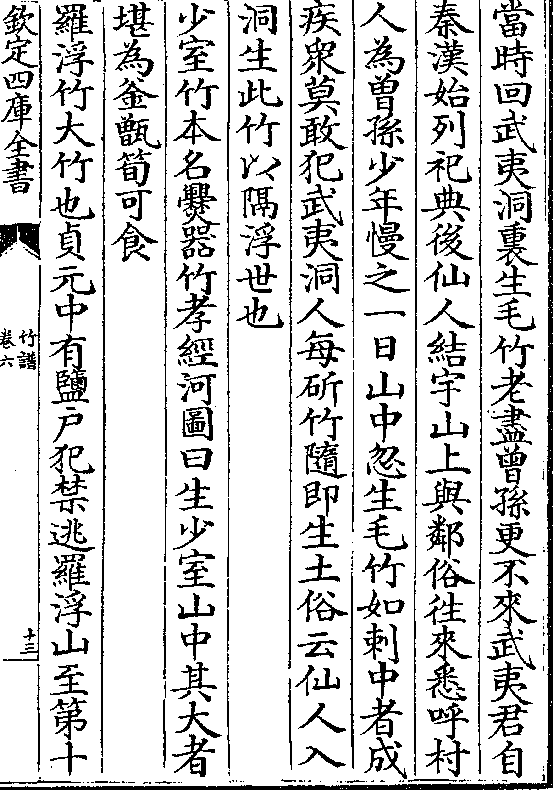 當時回武夷洞裏生毛竹老盡曾孫更不來武夷君自
秦漢始列祀典後仙人結宇山上與鄰俗往來悉呼村
人為曾孫少年慢之一日山中忽生毛竹如刺中者成
疾衆莫敢犯武夷洞人每斫竹隨即生土俗云仙人入
洞生此竹以隔浮世也
少室竹本名爨器竹孝經河圖曰生少室山中其大者
堪為釜甑筍可食
羅浮竹大竹也貞元中有鹽户犯禁逃羅浮山至第十
欽定四庫全書
竹譜
卷六
十三